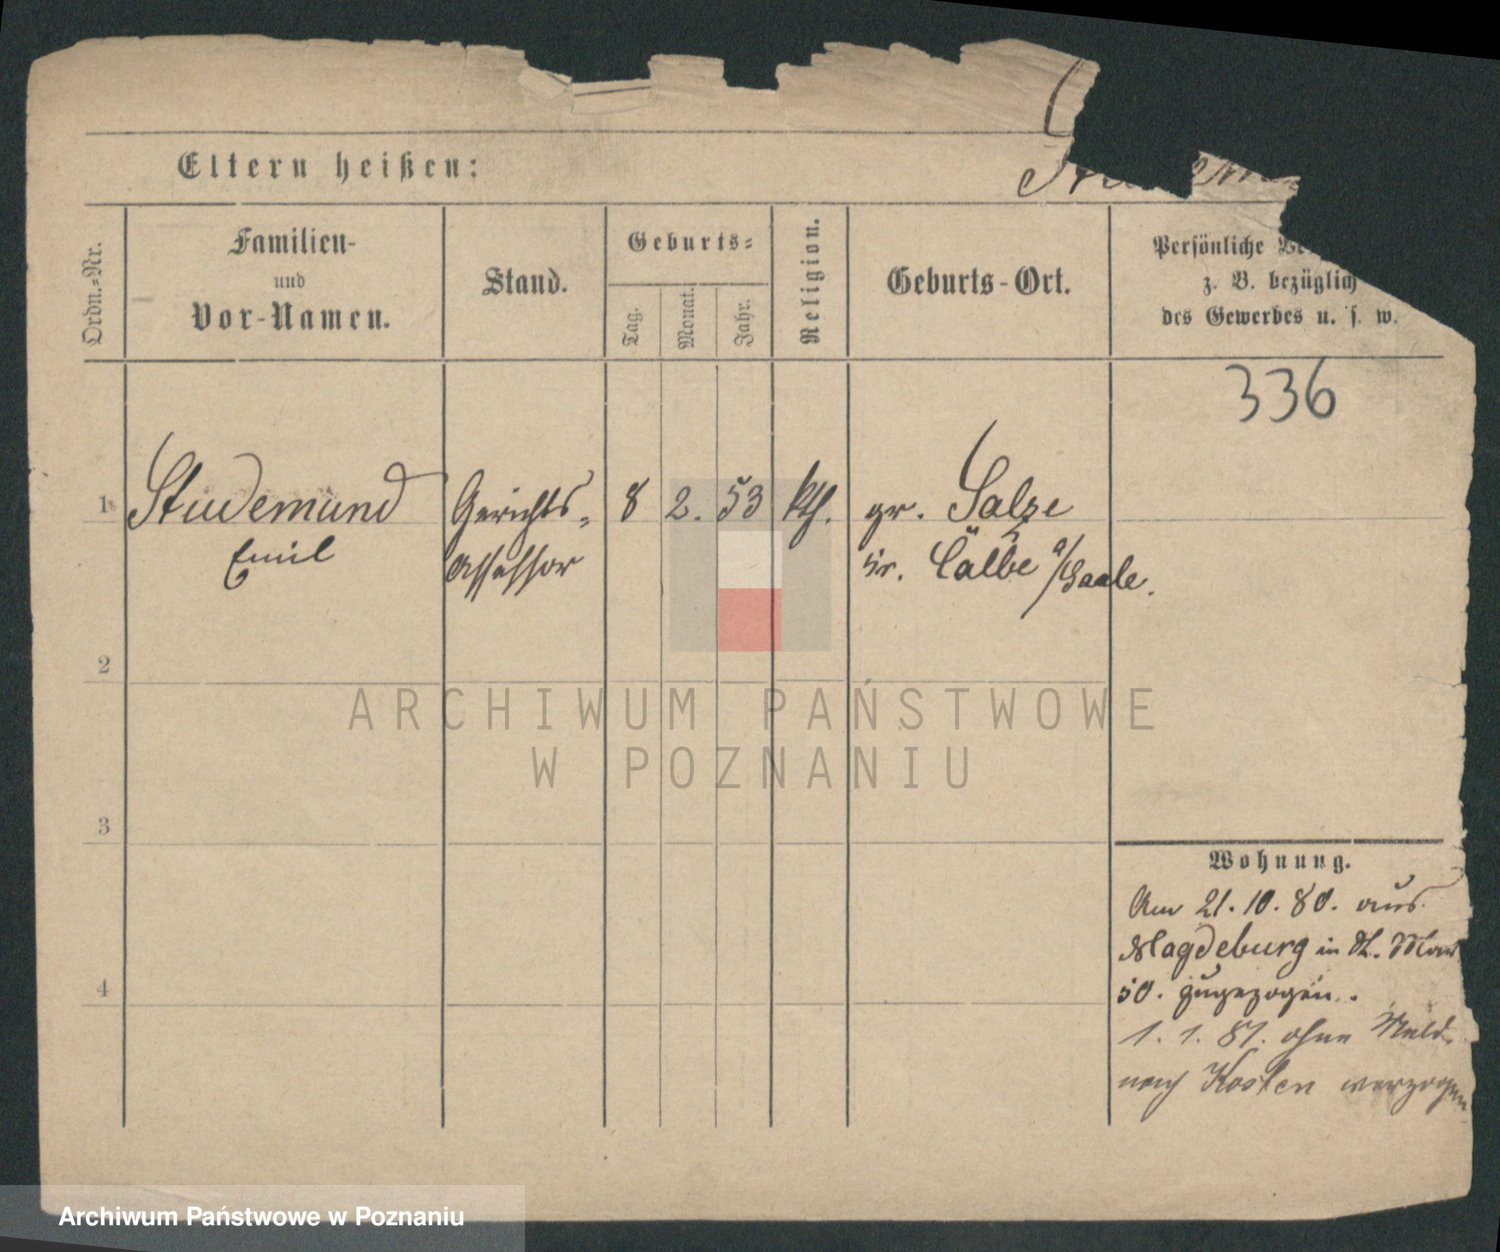 Eltern heißen:
Ordn.-Nr.
Familien-
und
Vor-Namen.
Stand.
Geburts-
Tag.
Monat.
Jahr.
Religion.
Geburts-Ort.
Persönliche
z. B. bezüglich
des Gewerbes u. s. w.
336
1 Studemund Gerichts- 8 2. 53 kth. gr. Salze
Emil Assessor Kr. Calbe a/Saale.
2
3
4
Wohnung.
Am 21.10.80. aus
Magdeburg in St.
50. zugezogen.
1. 1. 81. ohne Meld.
nach Kosten verzogen
ARCHIWUM PAŃSTWOWE
W POZNANIU
Archiwum Państwowe w Poznaniu